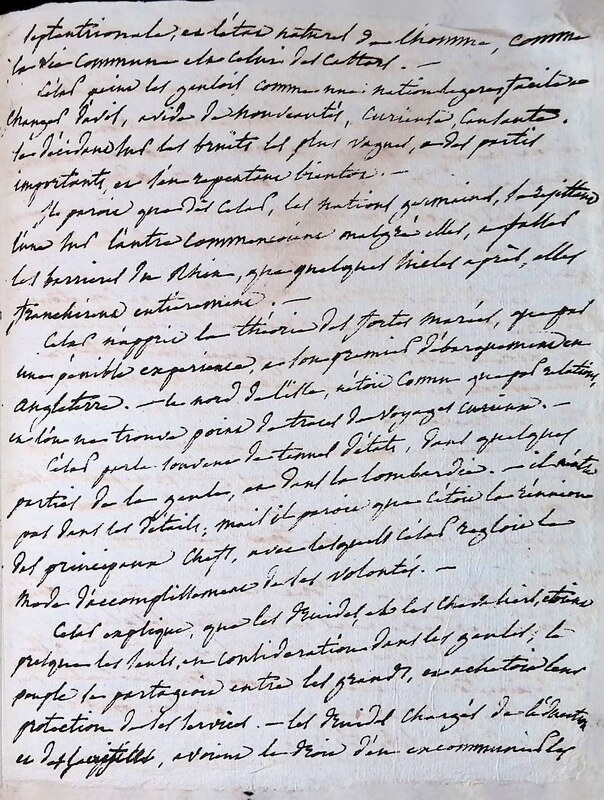 septentrionale, est l'état naturel de l'homme, comme
la vie commune est celui des castors. —
César peint les gaulois comme une nation legere, facile a
changer d'avis, avide de nouveautés, curieuse, causante.
se décidant sur les bruits les plus vagues, a des partis
importants, et s'en repentant bientot. —
Il paroit que dès César, les nations germaines, se rejettant
l'une sur l'autre commencoient malgré elles, a
les barrieres du Rhin, que quelques siecles après, elles
franchirent entierement. —
César n'apprit la théorie des fortes marées, que par
une pénible expérience, a son premier débarquement en
angleterre. — le nord de l'isle, n'étoit connu que par relations,
et l'on ne trouve point de traces de voyages curieux. —
César parle souvent de tenues d'états, dans quelques
parties de la gaule, et dans la lombardie. — il n'entre
pas dans les détails; mais il paroit que c'étoit la réunion
des principaux chefs, avec lesquels César regloit le
mode d'accomplissement de ses volontés. —
César explique, que les druides, et les chevaliers, étoient
presque les seuls, en considération dans les gaules; le
peuple se partageoit entre les grands, et achetoit leur
protection de ses services. — les druides chargés de l'éducation
et des sacrifices, avoient le droit d'en excommunier les